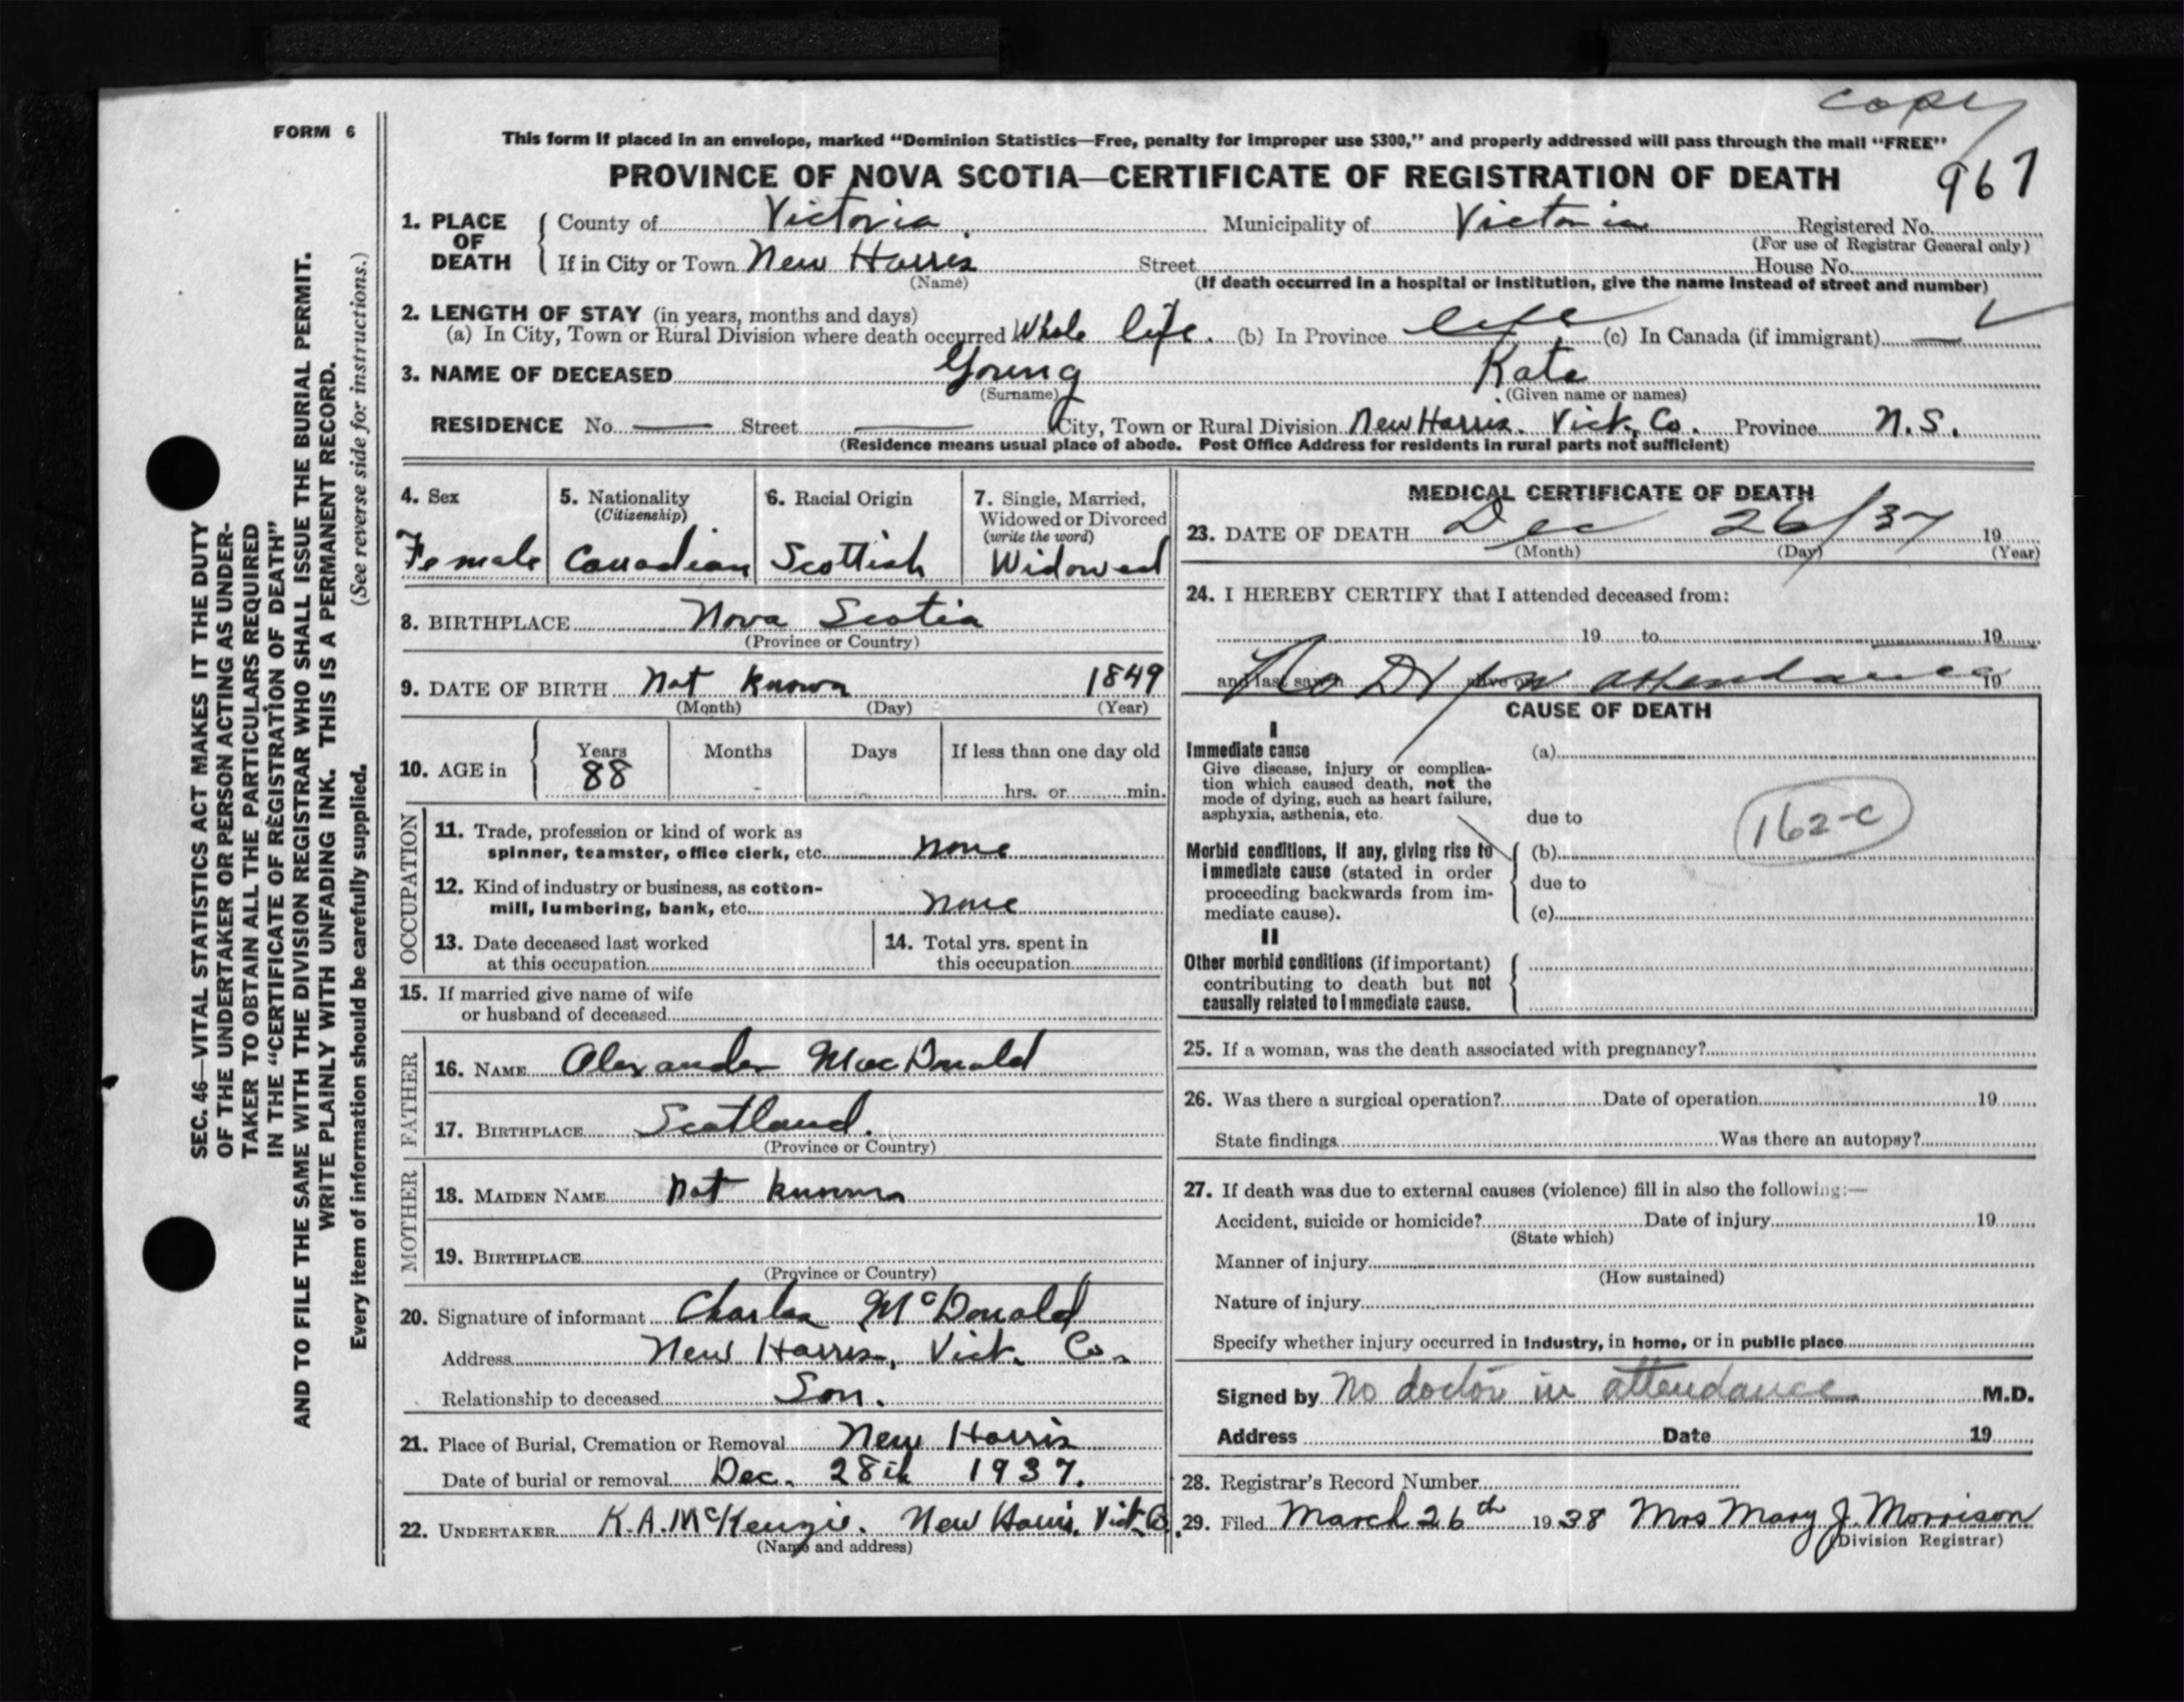 copy
FORM 6
This form if placed in an envelope, marked “Dominion Statistics—Free, penalty for improper use $300,” and properly addressed will pass through the mail “FREE”
PROVINCE OF NOVA SCOTIA—CERTIFICATE OF REGISTRATION OF DEATH 967
1. PLACE OF DEATH County of Victoria Municipality of Victoria Registered No.
(For use of Registrar General only)
If in City or Town New Harris Street House No.
(Name) (If death occurred in a hospital or institution, give the name instead of street and number)
2. LENGTH OF STAY (in years, months and days)
(a) In City, Town or Rural Division where death occurred Whole life. (b) In Province life (c) In Canada (if immigrant) —
3. NAME OF DECEASED Young Kate
(Surname) (Given name or names)
RESIDENCE No. — Street — City, Town or Rural Division New Harris. Vict. Co. Province N.S.
(Residence means usual place of abode. Post Office Address for residents in rural parts not sufficient)
SEC. 46—VITAL STATISTICS ACT MAKES IT THE DUTY
OF THE UNDERTAKER OR PERSON ACTING AS UNDER-
TAKER TO OBTAIN ALL THE PARTICULARS REQUIRED
IN THE “CERTIFICATE OF REGISTRATION OF DEATH”
AND TO FILE THE SAME WITH THE DIVISION REGISTRAR WHO SHALL ISSUE THE BURIAL PERMIT.
WRITE PLAINLY WITH UNFADING INK. THIS IS A PERMANENT RECORD.
Every item of information should be carefully supplied. (See reverse side for instructions.)
4. Sex
Female
5. Nationality
(Citizenship)
Canadian
6. Racial Origin
Scottish
7. Single, Married,
Widowed or Divorced
(write the word)
Widowed
8. BIRTHPLACE Nova Scotia
(Province or Country)
9. DATE OF BIRTH Not known 1849
(Month) (Day) (Year)
10. AGE in Years Months Days If less than one day old
88 hrs. or min.
OCCUPATION
11. Trade, profession or kind of work as
spinner, teamster, office clerk, etc. none
12. Kind of industry or business, as cotton-
mill, lumbering, bank, etc. none
13. Date deceased last worked
at this occupation
14. Total yrs. spent in
this occupation
15. If married give name of wife
or husband of deceased
FATHER
16. NAME Alexander MacDonald
17. BIRTHPLACE Scotland.
(Province or Country)
MOTHER
18. MAIDEN NAME not known
19. BIRTHPLACE
(Province or Country)
20. Signature of informant Charles McDonald
Address New Harris, Vict. Co.
Relationship to deceased Son.
21. Place of Burial, Cremation or Removal New Harris
Date of burial or removal Dec. 28th 1937.
22. UNDERTAKER K.A. McKenzie. New Harris, Vict. Co.
(Name and address)
MEDICAL CERTIFICATE OF DEATH
23. DATE OF DEATH Dec 26/37 19
(Month) (Day) (Year)
24. I HEREBY CERTIFY that I attended deceased from:
19 to 19
and last saw alive on 19
No Dr in attendance
CAUSE OF DEATH
I
Immediate cause (a)
Give disease, injury or complica-
tion which caused death, not the
mode of dying, such as heart failure,
asphyxia, asthenia, etc. due to
162-c
Morbid conditions, if any, giving rise to (b)
immediate cause (stated in order
proceeding backwards from im- due to
mediate cause). (c)
II
Other morbid conditions (if important)
contributing to death but not
causally related to immediate cause.
25. If a woman, was the death associated with pregnancy?
26. Was there a surgical operation? Date of operation 19
State findings Was there an autopsy?
27. If death was due to external causes (violence) fill in also the following:—
Accident, suicide or homicide? Date of injury 19
(State which)
Manner of injury
(How sustained)
Nature of injury
Specify whether injury occurred in industry, in home, or in public place
Signed by No doctor in attendance M.D.
Address Date 19
28. Registrar's Record Number
29. Filed March 26th 1938 Mrs Mary J. Morrison
(Division Registrar)